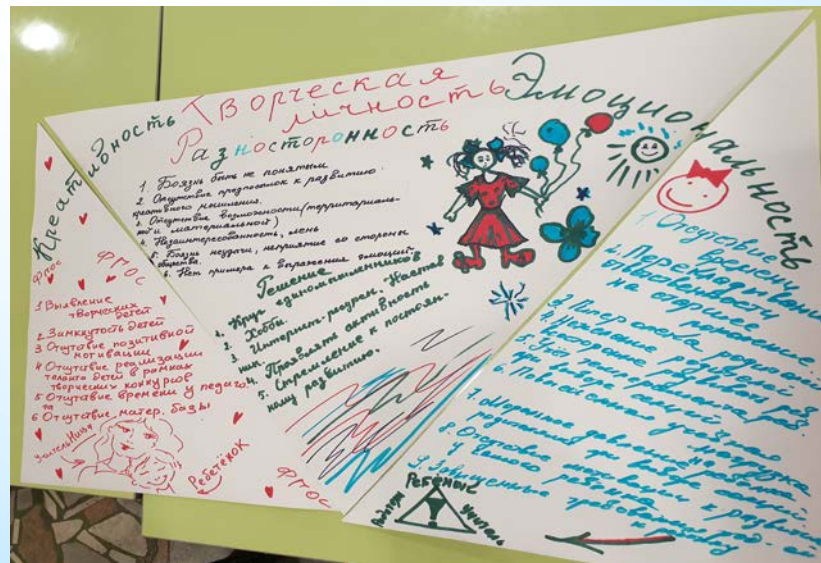 Творческая
личность
Разносторонность
1. Боязнь быть не понятым
2. Отсутствие предпосылок к развитию
креативного мышления.
3. Отсутствие возможности (территориаль-
й и материальной)
4. Незаинтересованность, лень
5. Боязнь неудачи, неприятие со стороны
общества.
6. Нет примера в выражения эмоций
Решение
1. Круг единомышленников
2. Хобби.
3. Интернет-ресурсы. - Настав
ник.
4. Проявлять активность
5. Стремление к постоян-
ному развитию.
Креативность
ФМОС
ФМОС
1 Выявление
творческих
детей
2 Замкнутость детей
3 Отсутствие позитивной
мотивации
4 Отсутствие реализации
таланта детей в рамках
творческих конкурсов
5 Отсутствие времени у педаго
га
6 Отсутствие матер. базы
УчительНица
Ребетёнок
ФМОС
Эмоциональность
1 Отсутствие
времени
2. Перекладывание
ответственности
на старшее
поколение.
3. Гипер опека родителей
4. Нежелание родителей
всесторонне развивать реб.
5. Учёт темперамента реб.
при выборе секций
6. Полносменная учебная
нагрузка
7. Моральное давление
родителей при выборе секций
8. Отставка мотивации к развитию
у самого ребёнка
9. Завышенные требования род-ей
к ребёнку
Ребенок
Родители
учитель